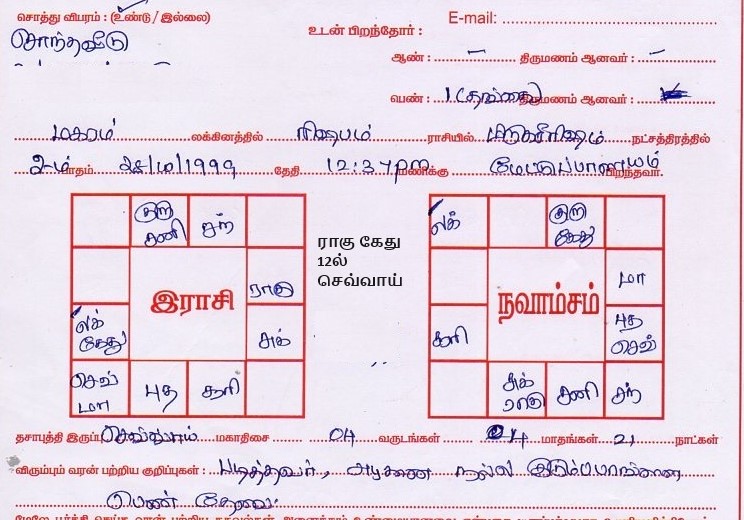 சொத்து விபரம் : (உண்டு / இல்லை)
சொந்தவீடு
E-mail:
உடன் பிறந்தோர் :
ஆண் : – திருமணம் ஆனவர் : –
பெண் : 1 (தங்கை) திருமணம் ஆனவர் :
மகரம் லக்கினத்தில் ரிஷபம் ராசியில் மிருகசீரிஷம் நட்சத்திரத்தில்
மாதம் 1999 தேதி 12:37 pm மணிக்கு மேட்டுப்பாளையம் பிறந்தவர்.
குரு சனி
சந்
இராசி
ராகு
லக் கேது
சுக்
செவ் மா
புத
சூரி
ராகு கேது
12ல்
செவ்வாய்
லக்
குரு கேது
நவாம்சம்
மா
சூரி
புத செவ்
சுக் ராகு
சனி
சந்
தசாபுத்தி இருப்பு செவ்வாய் மகாதிசை 04 வருடங்கள் மாதங்கள் 21 நாட்கள்
விரும்பும் வரன் பற்றிய குறிப்புகள் : படித்தவர், அழகான நல்ல குடும்பபாங்கான
பெண் தேவை